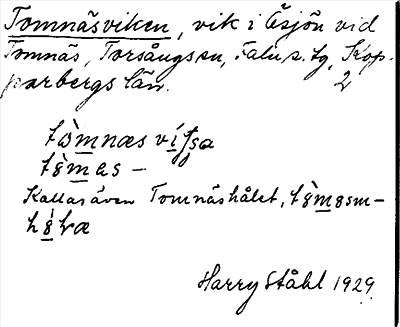 Tomnäsviken, vik i Ösjön vid
Tomnäs, Torsångs sn, Falu s. tg, Kop-
parbergs län. 2
tò̀mnæs
tò̀mɛs –
Kallas även Tomnäshålet,
Harry Ståhl 1929